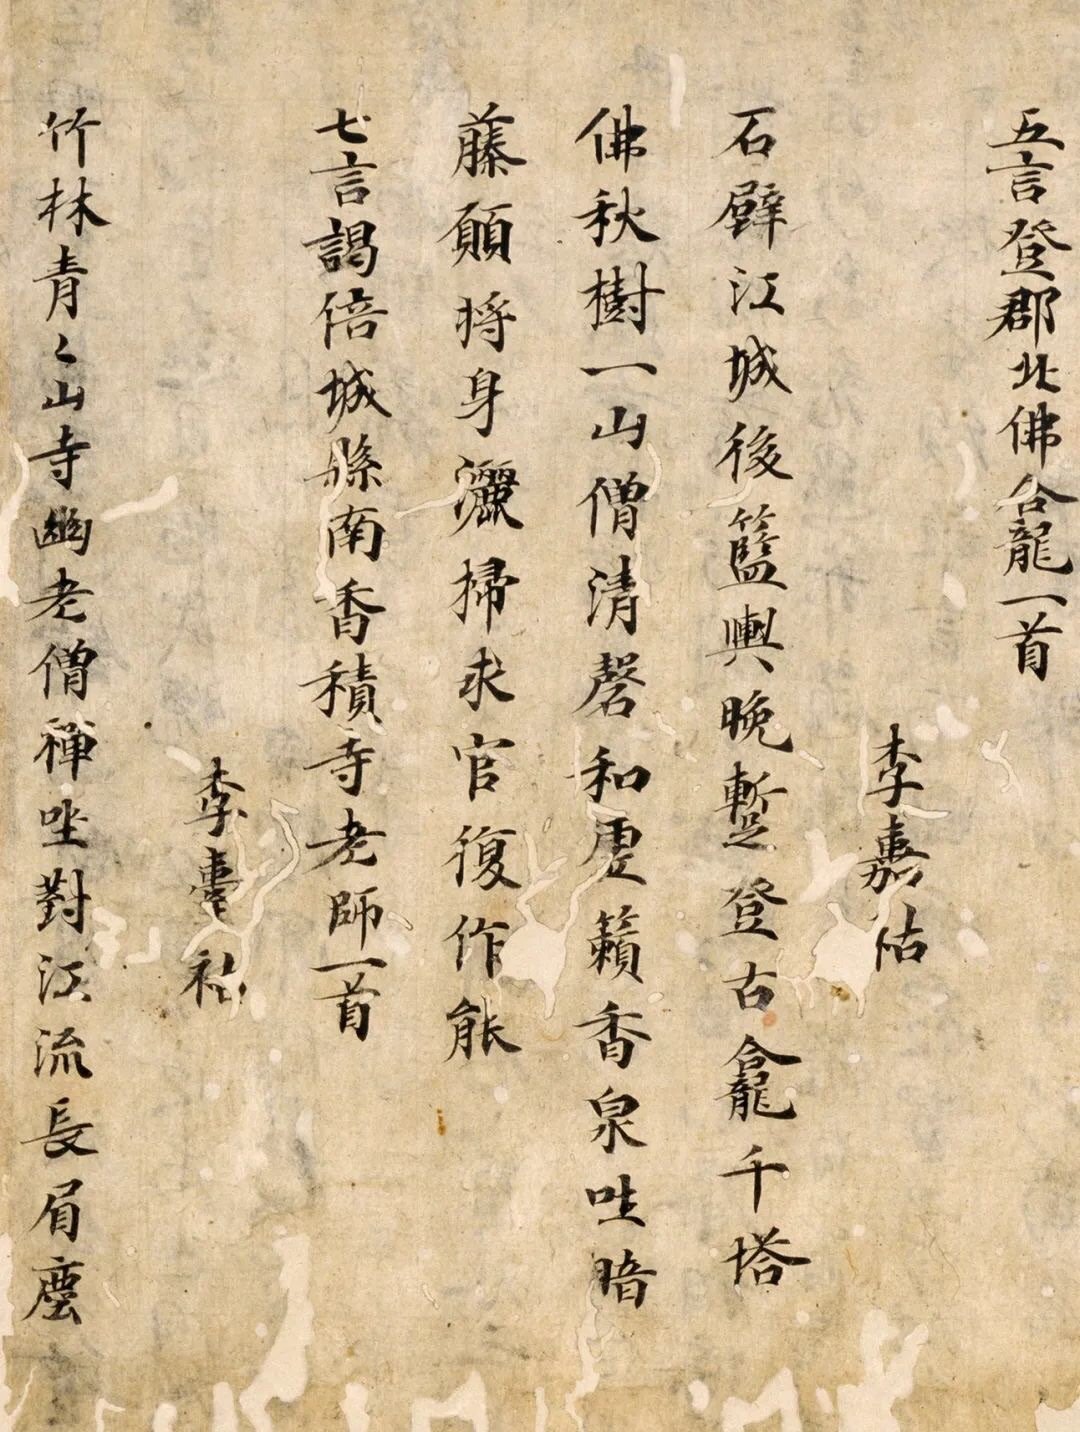 五言登郡北佛龕一首
李嘉祐
石壁江城後籃輿晚蹔登古龕千塔
佛秋樹一山僧清磬和虛籟香泉吐暗
藤願將身灑掃求官復作能
七言謁倍城縣南香積寺老師一首
李臺
竹林青〻山寺幽老僧禪坐對江流長眉塵